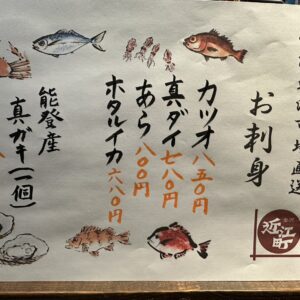 市場直送
お刺身
カツオ 八五〇円
真ダイ 七八〇円
あら 八〇〇円
ホタルイカ 六八〇円
能登産
真ガキ(一個)
近江町